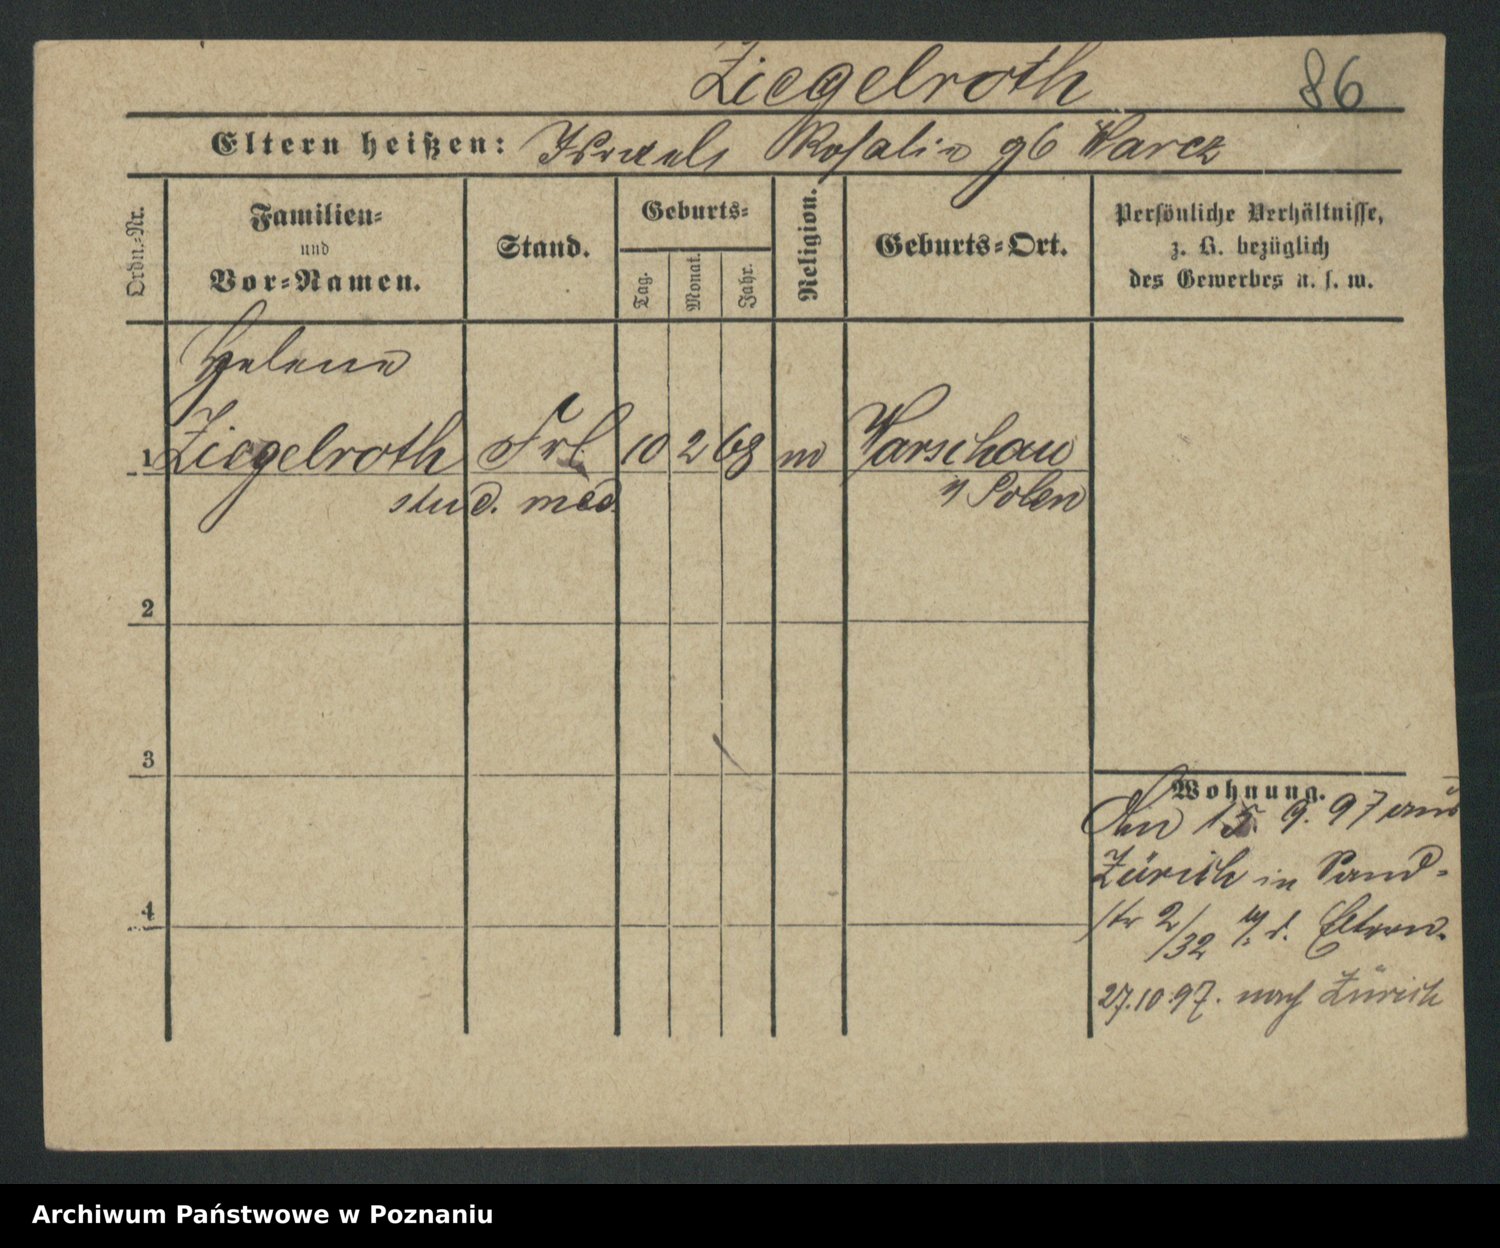 Ziegelroth 86
Eltern heißen: Israels Rosalie gb Warcz
Ordn.-Nr.
Familien-
und
Vor-Namen.
Stand.
Geburts-
Tag.
Monat.
Jahr.
Religion.
Geburts-Ort.
Persönliche Verhältnisse,
z. B. bezüglich
des Gewerbes u. s. w.
Helene
1 Ziegelroth Frl 10 2 68 m Warschau
stud. med. Polen
2
3
4
Wohnung.
Den 15. 9. 97 aus
Zürich in Sand-
str 2/32 d. Eltern.
27.10.97. nach Zürich
Archiwum Państwowe w Poznaniu